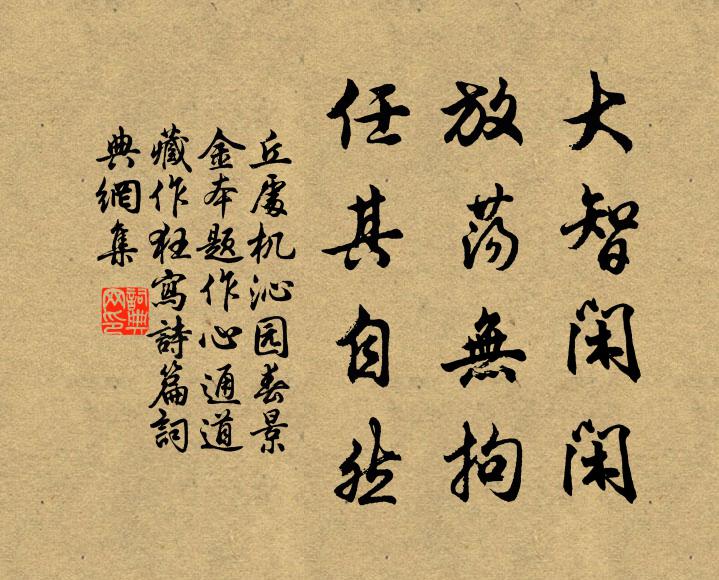 大智閑閑
放荡無拘
任其自然
丘處机沁园春景
金本題作心通道
藏作狂寫詩篇詞
典網集
詞典
网印